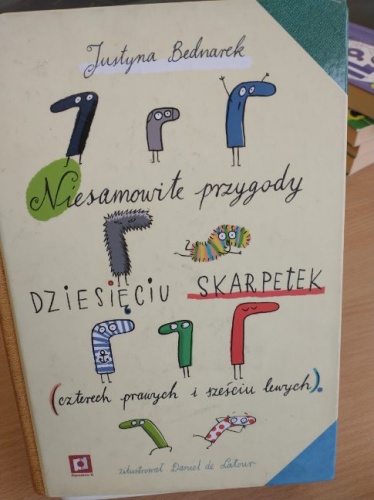 Justyna Bednarek
Niesamowite przygody
DZIESIĘCIU SKARPETEK
(czterech prawych i sześciu lewych).
zilustrował Daniel de Latour